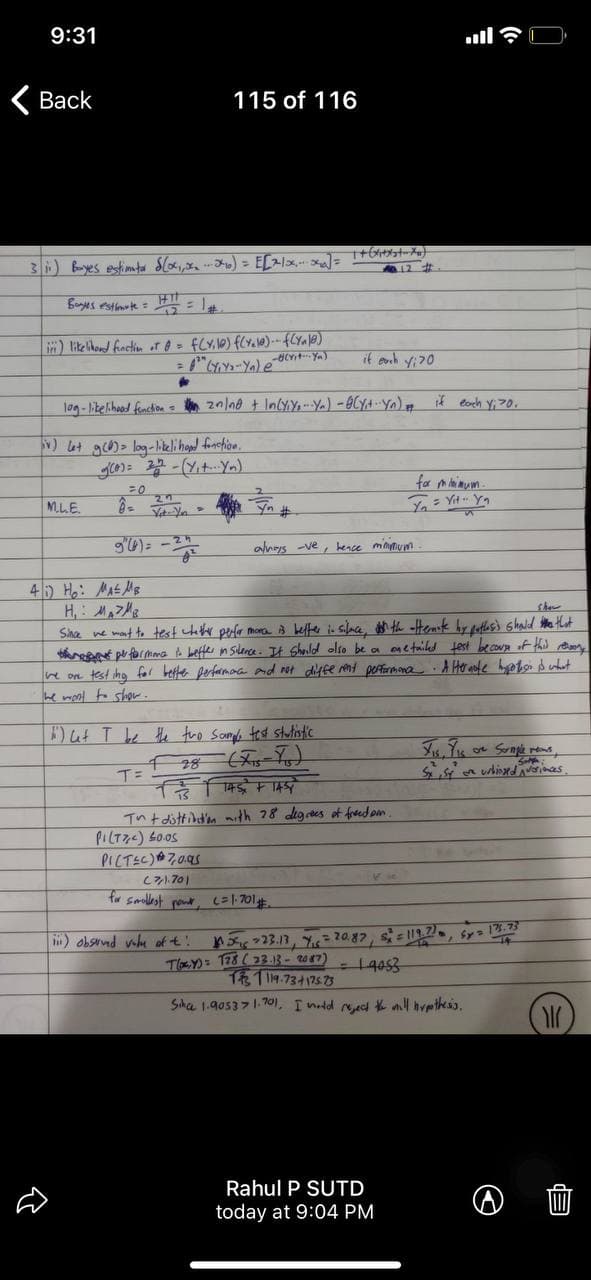 9:31
Back
115 of 116
3 ii) Bayes estimator δ(x₁,x₂ ... x₁₀) = E[λ|x₁...x₁₀] = 1+(x₁+x₂+...x₁₀) / 12 #.
Bayes estimate = 1+11 / 12 = 1 #.
iii) likelihood function of θ = f(Y₁|θ) f(Y₂|θ)...f(Yn|θ)
= θ²ⁿ (Y₁Y₂...Yn) e^-θ(Y₁+...Yn) if each yi>0
log-likelihood function = 2nlnθ + ln(Y₁Y₂...Yn) - θ(Y₁+...Yn) # if each Yi>0.
iv) Let g(θ) = log-likelihood function.
g'(θ) = 2n/θ - (Y₁+...Yn)
=0 for minimum.
M.L.E. θ̂ = 2n / Y₁+...Yn = 2 / Ȳn #. Ȳn = Y₁+...Yn / n
g''(θ) = -2n/θ² always -ve, hence minimum.
4 i) H₀: μA≤μB
H₁: μA>μB
Since we want to test whether performance is better in silence, the alternate hypothesis should show that
performance is better in silence. It should also be a one tailed test because of this reason,
we are testing for better performance and not different performance. Alternate hypothesis is what
we want to show.
ii) Let T be the two sample test statistic
T = √28 (X̄₁₅-Ȳ₁₅) / √(2/15) √(14Sx² + 14Sy²) X̄₁₅, Ȳ₁₅ are sample means,
Sx², Sy² are unbiased sample variances.
T in t distribution with 28 degrees of freedom.
P(T≥c) ≤0.05
P(T≤c) ≥0.95
c≥1.701
for smallest power, c=1.701 #.
iii) observed value of t: x̄₁₅=23.13, ȳ₁₅=20.87, sx²=119.73/14, sy²=175.73/14
T(x,y) = √28 (23.13-20.87) / √(2/15) √(119.73+175.73) = 1.9053
Since 1.9053>1.701, I would reject the null hypothesis.
Rahul P SUTD
today at 9:04 PM